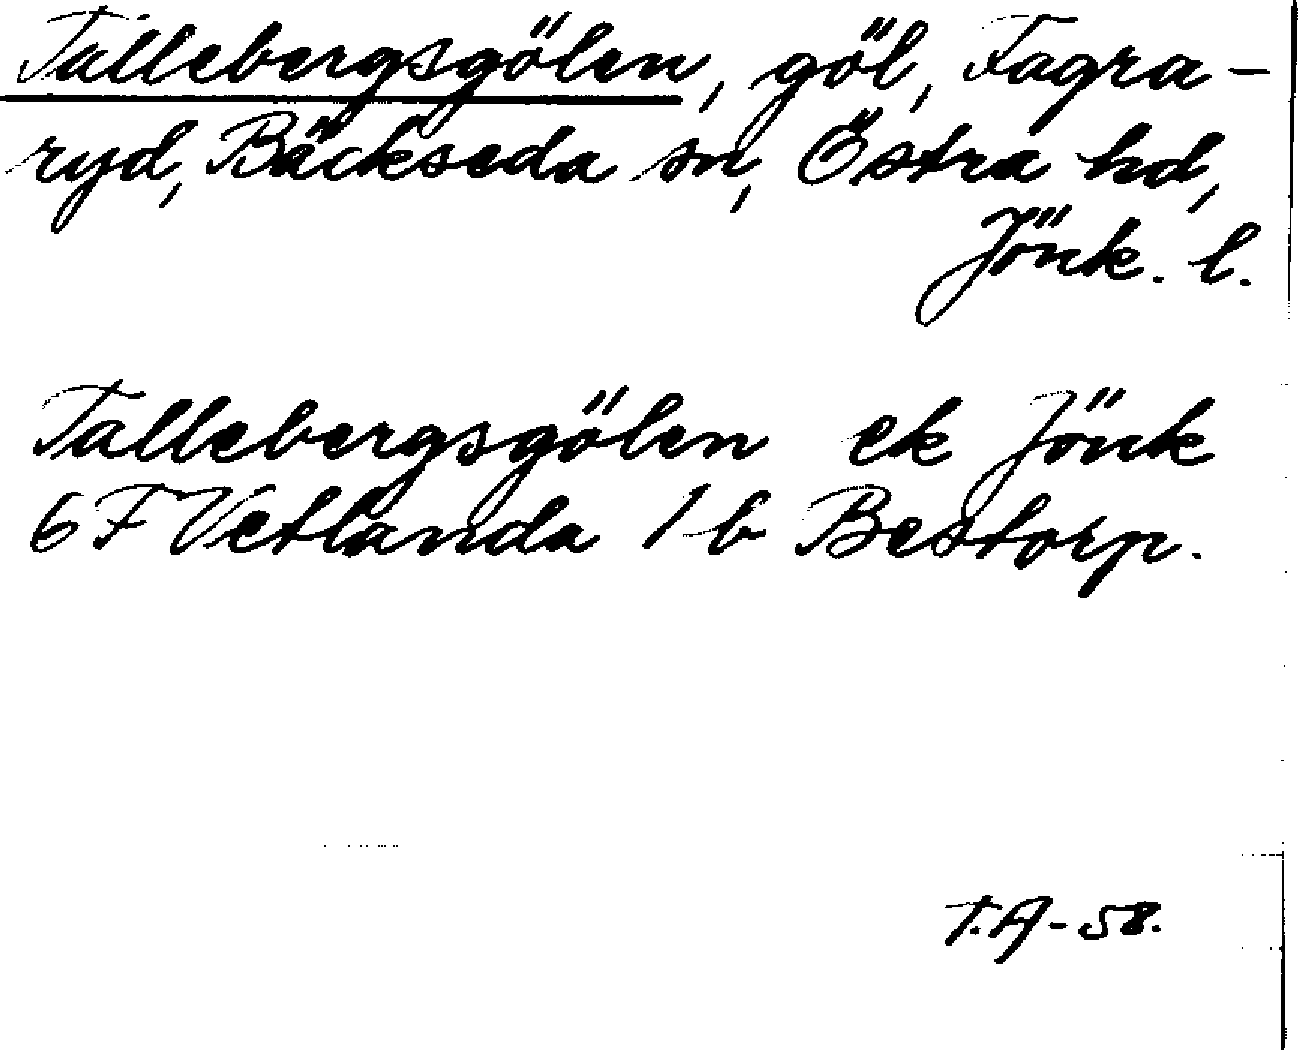 Tallebergsgölen, göl, Fagra-
ryd, Bäckseda sn, Östra hd,
Jönk. l.
Tallebergsgölen ek Jönk
6 F Vetlanda 1 b Bestorp.
T.A-58.